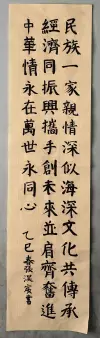 民族一家親情深似海深文化共傳承
經濟同振興攜手創未來並肩齊奮進
中華情永在萬世永同心 乙巳春張